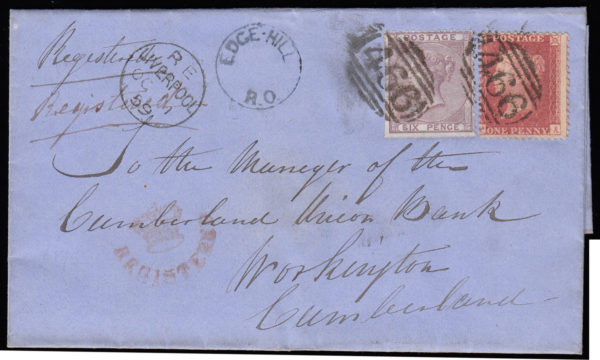 Registered
Registered
R E
LIVERPOOL
59
EDGE-HILL
R.O.
POSTAGE
SIX PENCE
466
POSTAGE
ONE PENNY
A
466
To the Manager of the
Cumberland Union Bank
Workington
Cumberland
REGISTERED